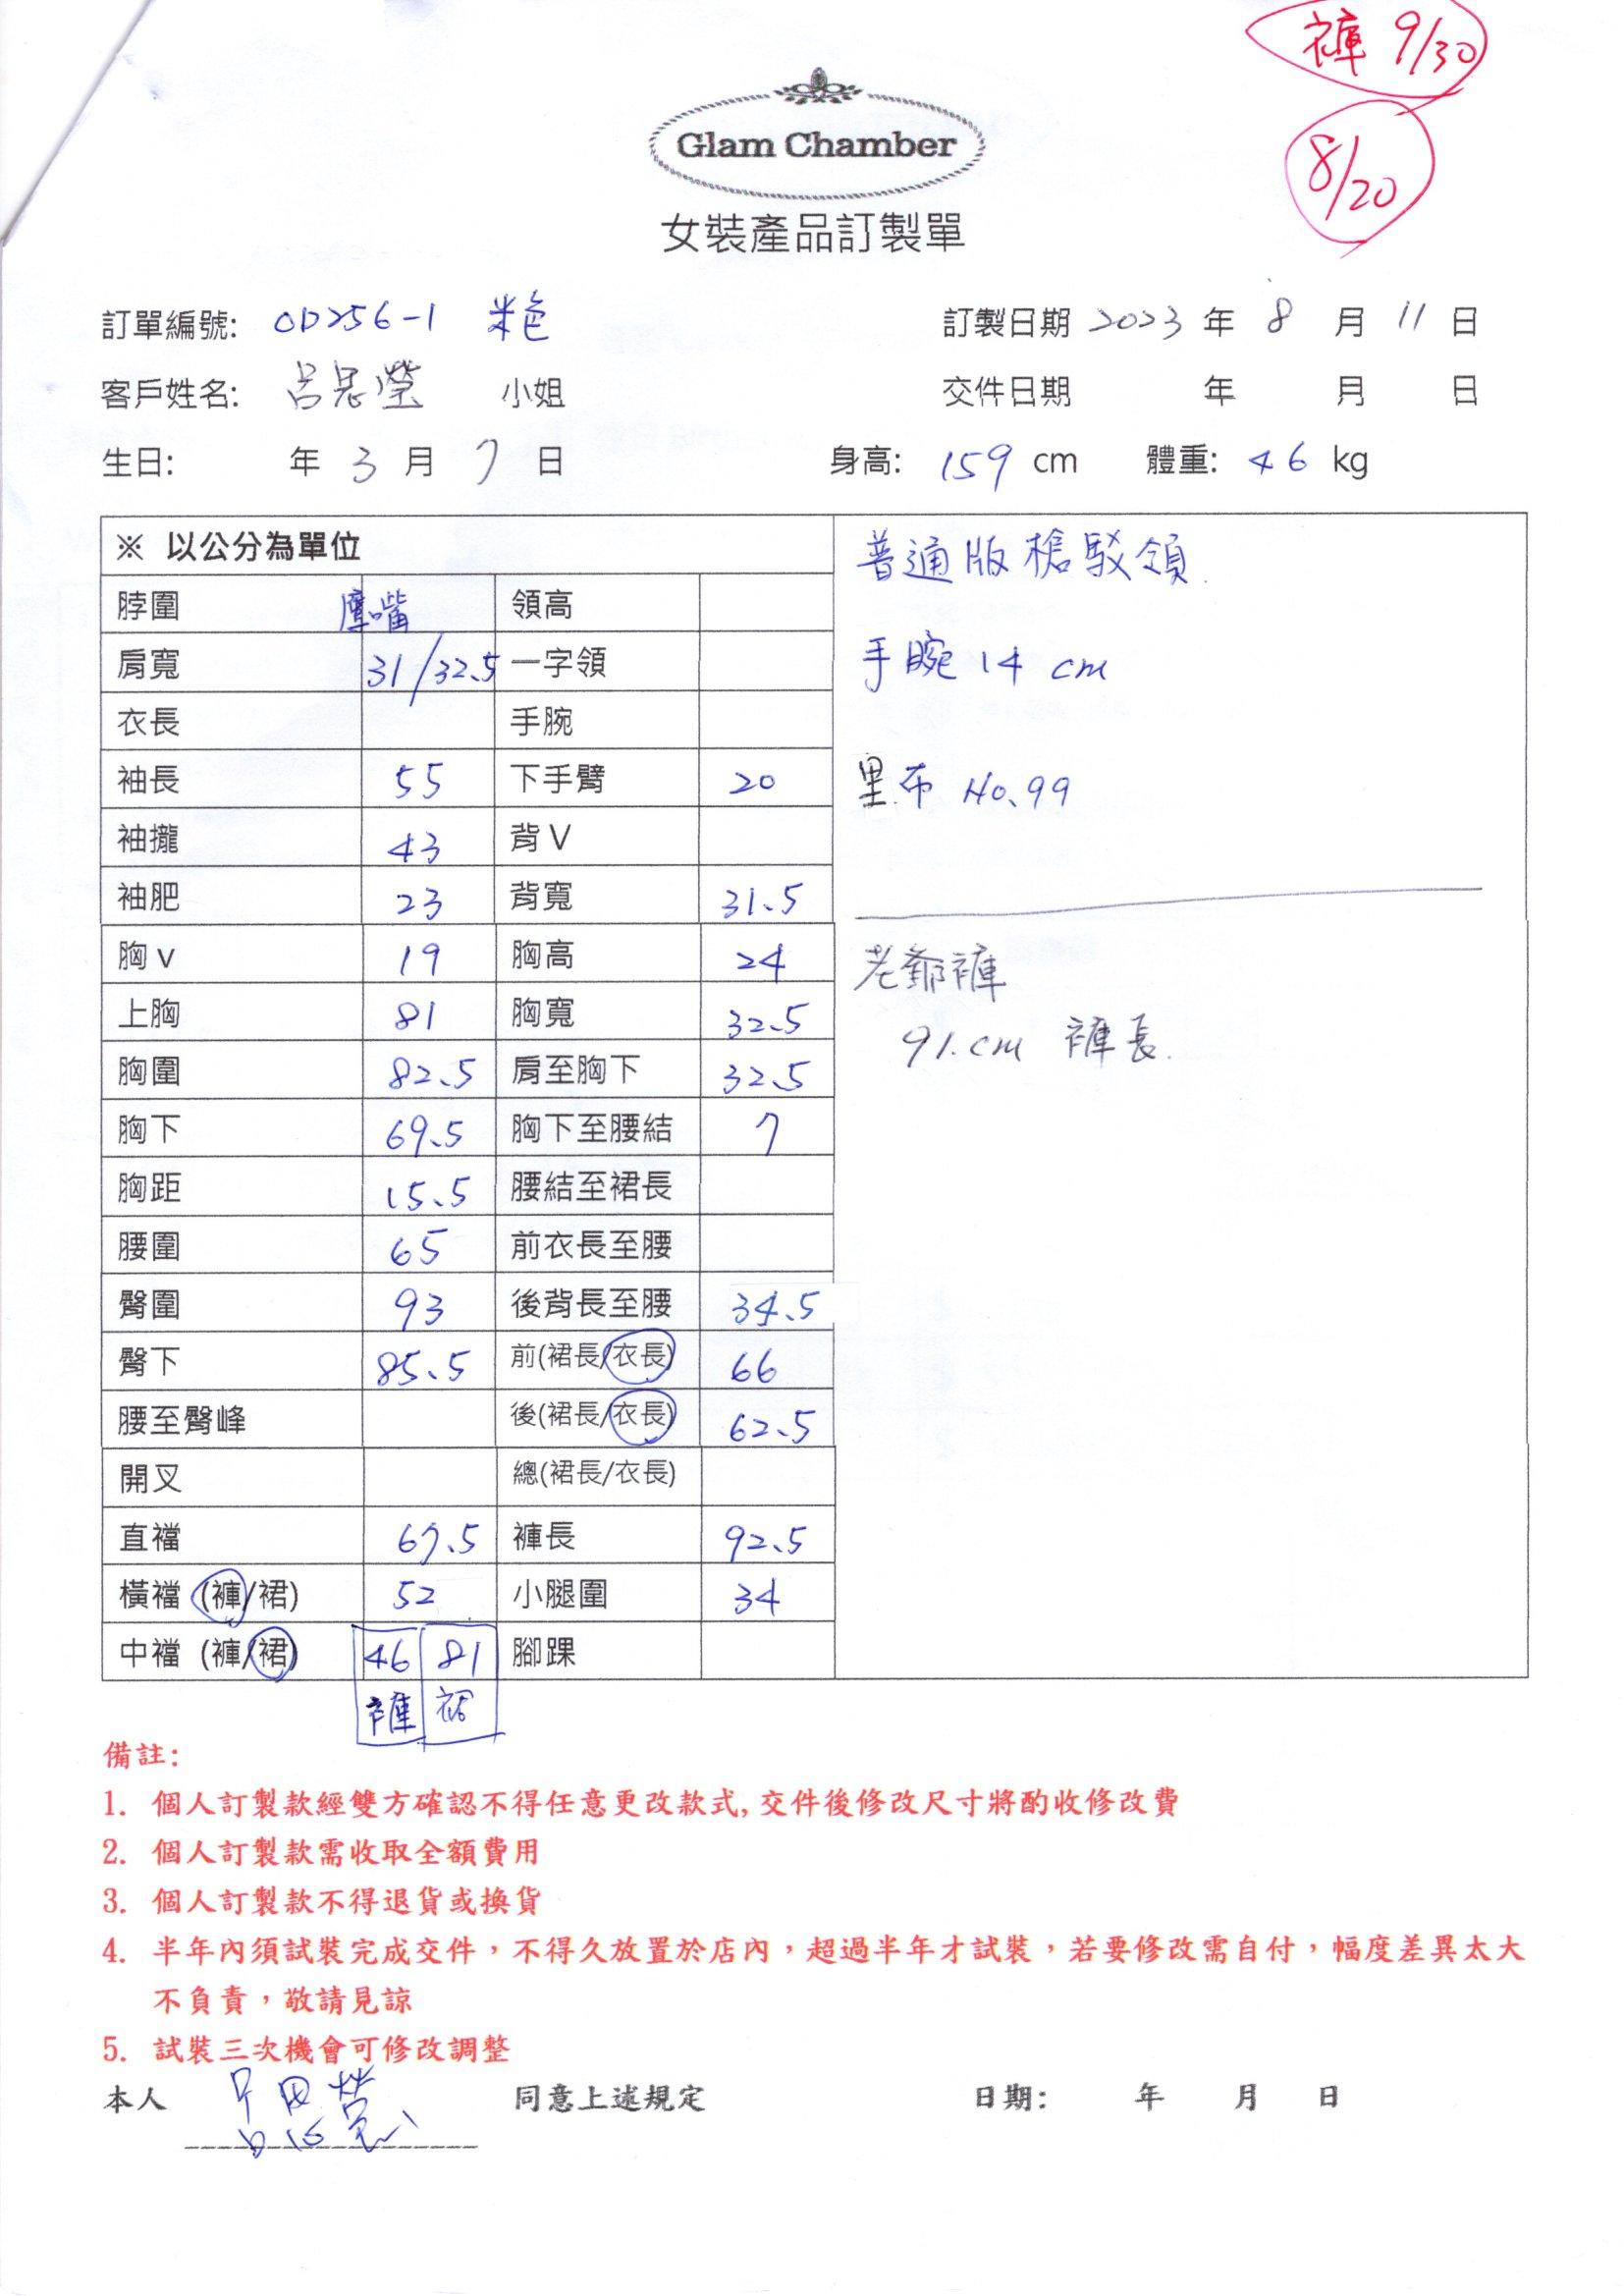 褲 9/30
8/20
Glam Chamber
女裝產品訂製單
訂單編號: OD256-1 米色 訂製日期 2023 年 8 月 11 日
客戶姓名: 呂思瑩 小姐 交件日期 年 月 日
生日: 年 3 月 7 日 身高: 159 cm 體重: 46 kg
※ 以公分為單位
脖圍 鷹嘴 領高
肩寬 31/32.5 一字領
衣長 手腕
袖長 55 下手臂 20
袖攏 43 背V
袖肥 23 背寬 31.5
胸v 19 胸高 24
上胸 81 胸寬 32.5
胸圍 82.5 肩至胸下 32.5
胸下 69.5 胸下至腰結 7
胸距 15.5 腰結至裙長
腰圍 65 前衣長至腰
臀圍 93 後背長至腰 34.5
臀下 85.5 前(裙長/衣長) 66
腰至臀峰 後(裙長/衣長) 62.5
開叉 總(裙長/衣長)
直襠 67.5 褲長 92.5
橫襠 (褲/裙) 52 小腿圍 34
中襠 (褲/裙) 46 81 腳踝
褲 裙
普通版槍駁領
手腕 14 cm
里布 No.99
老爺褲
91.cm 褲長
備註:
1. 個人訂製款經雙方確認不得任意更改款式,交件後修改尺寸將酌收修改費
2. 個人訂製款需收取全額費用
3. 個人訂製款不得退貨或換貨
4. 半年內須試裝完成交件，不得久放置於店內，超過半年才試裝，若要修改需自付，幅度差異太大
不負責，敬請見諒
5. 試裝三次機會可修改調整
本人 呂思瑩 同意上述規定 日期: 年 月 日